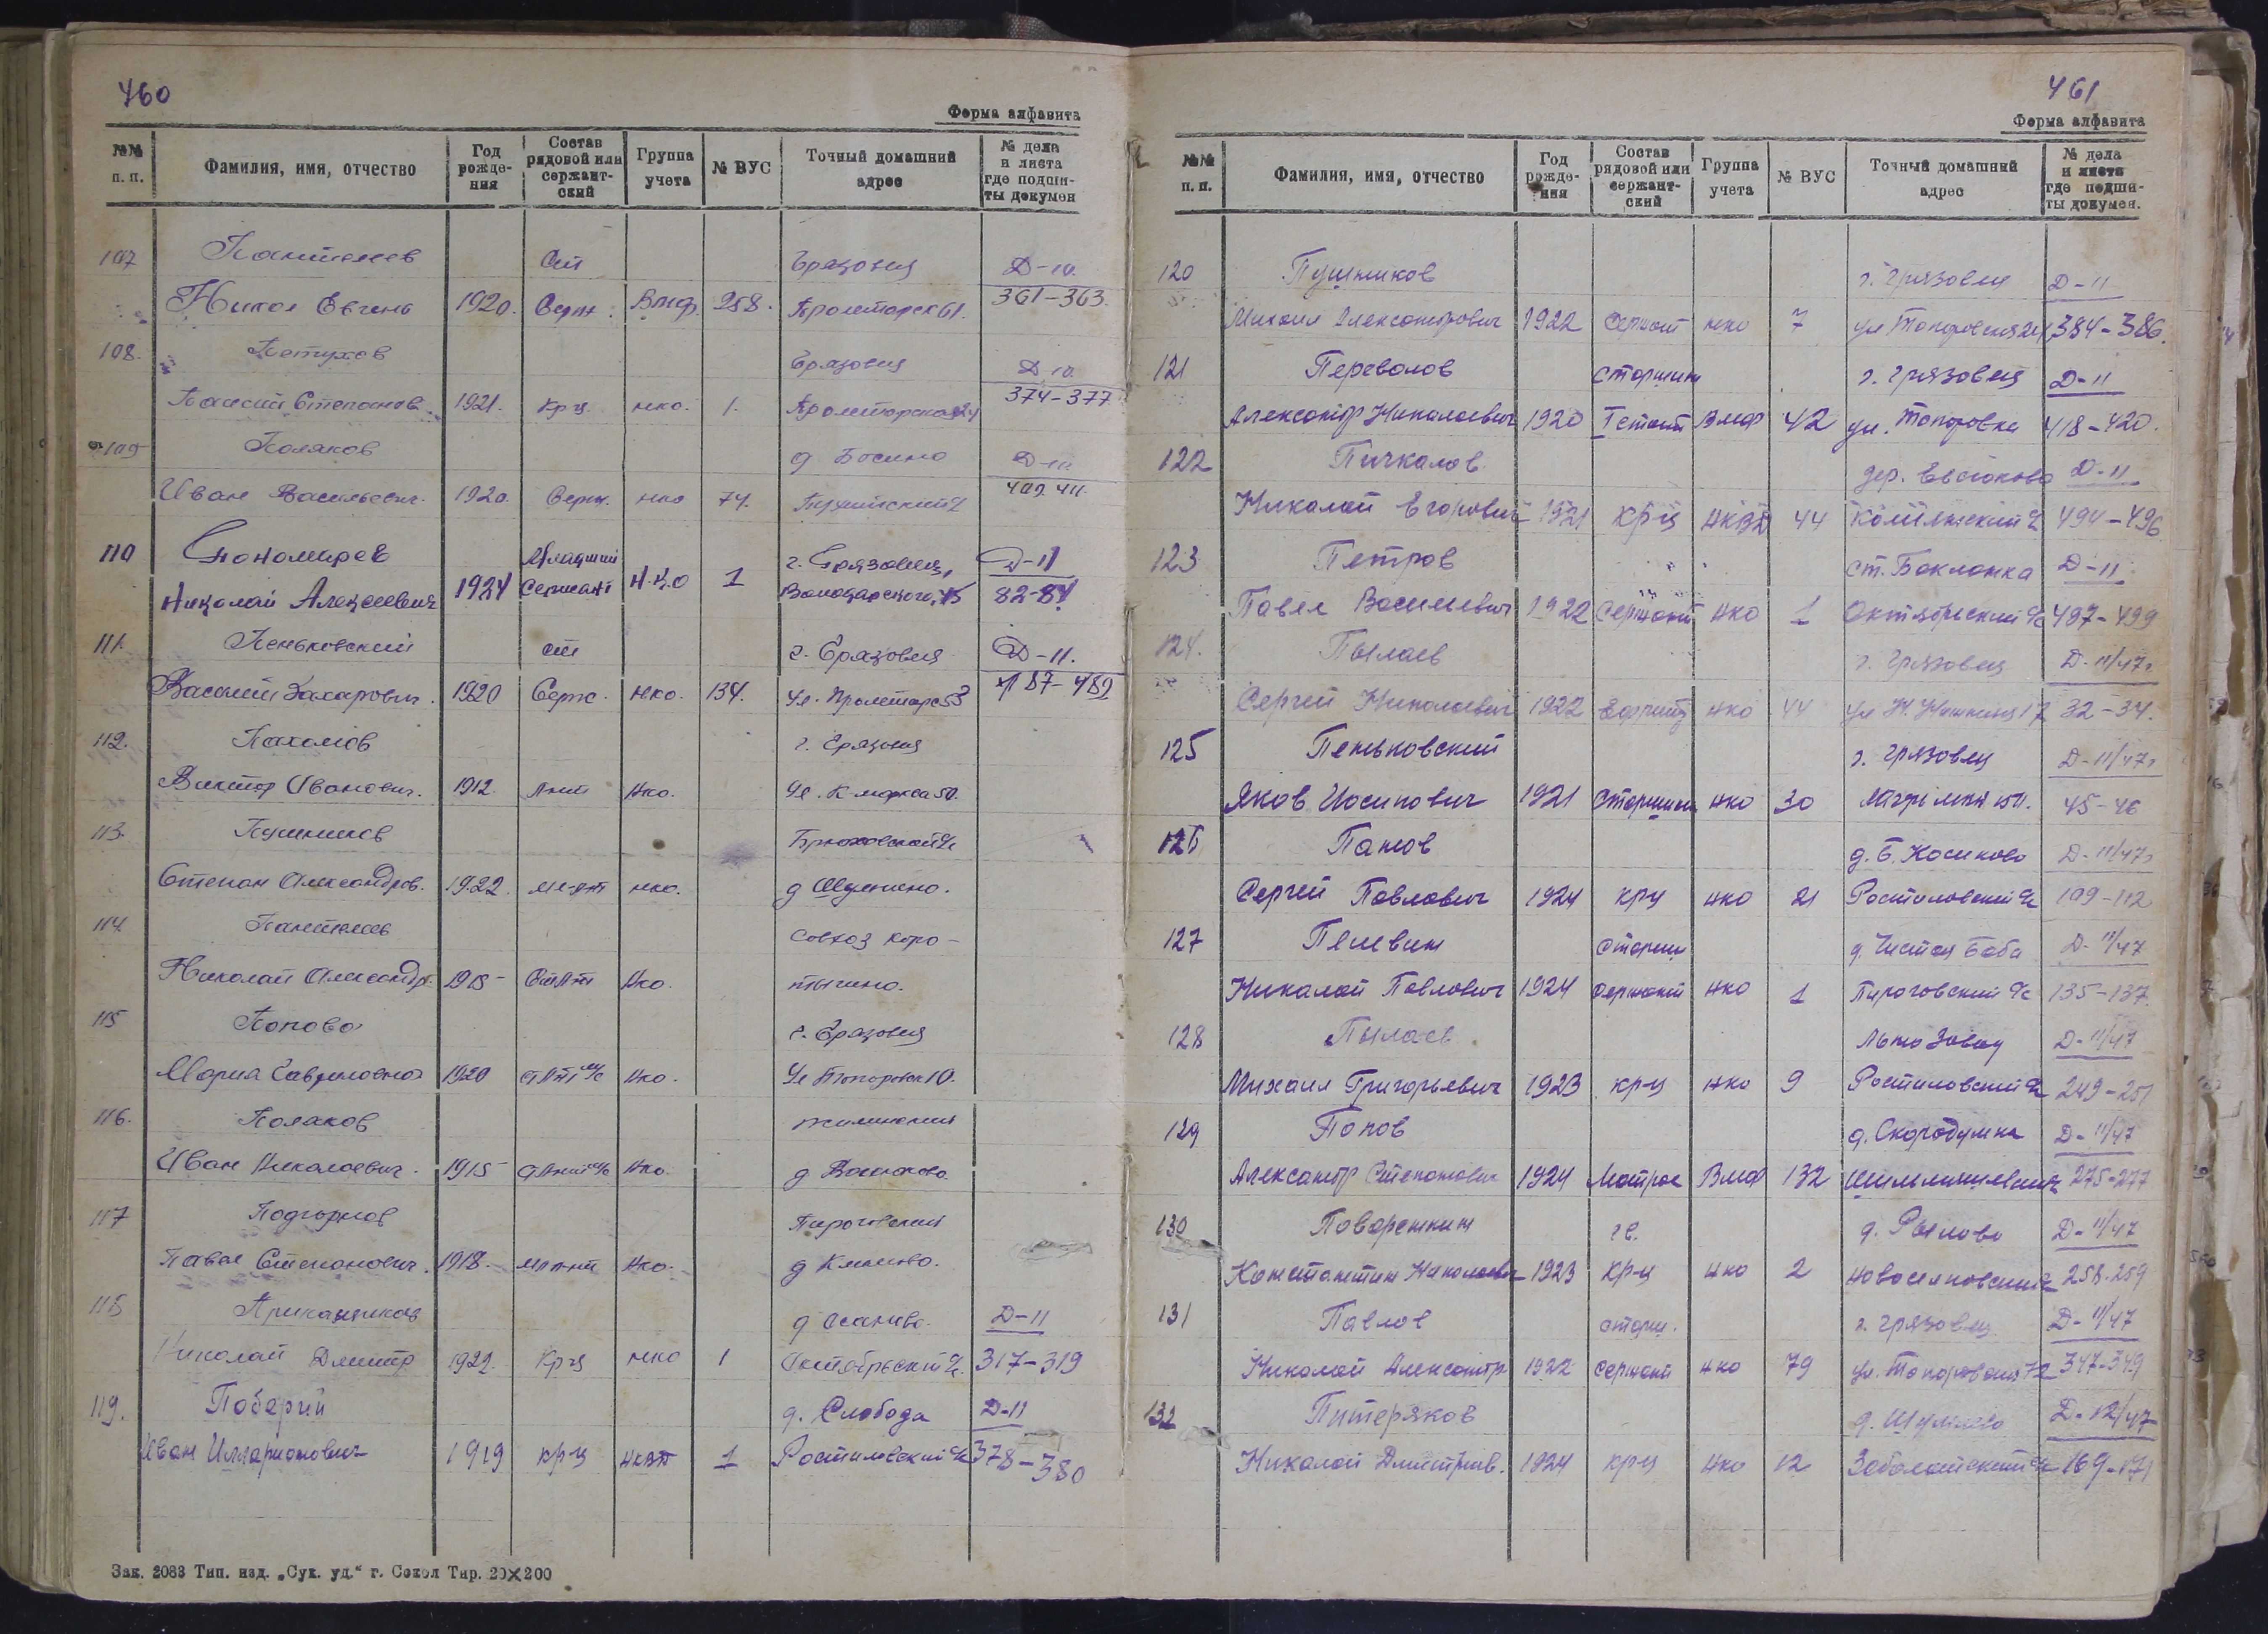 460
Форма алфавита
№№ п. п. Фамилия, имя, отчество Год рожде- ния Состав рядовой или сержант- ский Группа учета № ВУС Точный домашний адрес № дела и листа где подши- ты докумен
107 Пантелеев Ст Грязовец Д-10.
Никол Евгень 1920. Серж. Вмф. 258. Пролетарск 61. 361-363.
108. Петухов Грязовец Д 10
Степанов. 1921. Кр-ц. нко. 1. Пролетарская 374-377
109 Поляков д Босино Д-10
Иван Васильевич. 1920. Серж. нко 74. 409 411.
110 Пономарев Младший г. Грязовец, Д-11
Николай Алексеевич 1924 Сержант Н.К.О 1 Володарского, 15 82-84
111. Пеньковский ст г. Грязовец Д-11.
Василий Захарович. 1920 Серж. нко. 134. Ул. Пролетарс 53 487-489
112. Пахомов г. Грязовец
Виктор Иванович. 1912. Лнт Нко. Ул. К маркса 50.
113. Пушников Брюховский с/с
Степан Александров. 1922. мл-лт нко. д
114 Пантелеев Совхоз Коро-
Николай Александр. 1918 Ст Лт Нко. тыгино.
115 Попова г. Грязовец
Мария Гавриловна 1920 ст Лт м/с Нко. Ул Топоровск 10.
116. Поляков
Иван Николаевич. 1915 Нко. д
117 Подгорнов Пироговский
Павел Степанович. 1918. мл т-нт Нко. д
118 Приказчиков д Осаново. Д-11
Николай Дмитр 1922. Кр-ц нко 1 Октябрьский с/с. 317-319
119. Поберий д. Слобода Д-11
Иван Илларионович 1919 кр-ц НКВД 1 Ростиловский с/с 378-380
Зак. 2083 Тип. изд. „Сук. уд.“ г. Сокол Тир. 20×200
461
Форма алфавита
№№ п. п. Фамилия, имя, отчество Год рожде- ния Состав рядовой или сержант- ский Группа учета № ВУС Точный домашний адрес № дела и листа где подши- ты докумен.
120 Пушников г. Грязовец Д-11
Михаил Александрович 1922 Сержант нко 7 ул Топоровская 384-386.
121 Перевалов старшин г. Грязовец Д-11
Александр Николаевич 1920 Вмф 42 ул. Топоровка 418-420.
122 Пичкалов. дер. Евсюково Д-11
Николай Егорович 1921 кр-ц НКВД 44 494-496
123 Петров ст. Бакланка Д-11
Павел Васильевич 1922 Сержант нко 1 Октябрьский с/с 497-499
124. Пылаев г. Грязовец Д-11/47г
Сергей Николаевич 1922 Ефрейт нко 44 32-34.
125 Пеньковский г. Грязовец Д-11/47г
Яков Иосипович 1921 Старшин нко 30 45-46
126 Панов д. Б. Косиково Д-11/47г
Сергей Павлович 1924 кр-ц нко 21 Ростиловский с/с 109-112
127 Пелевин Старш д. Чистая Баба Д-11/47
Николай Павлович 1924 сержант нко 1 Пироговский с/с 135-137.
128 Пылаев Льно Завод Д-11/47
Михаил Григорьевич 1923 кр-ц нко 9 Ростиловский с/с 249-251
129 Попов д. Скородумка Д-11/47
Александр Степанович 1924 Матрос Вмф 132 275-277
130 Поварешкин гв. д. Рылово Д-11/47
Константин Николаев 1923 Кр-ц нко 2 Новоселковский с/с 258-259
131 Павлов старш. г. Грязовец Д-11/47
Николай Александр 1922 сержант нко 79 ул. Топоровская 72 347-349
132 Питеряков Д-12/47
Николай Дмитриев. 1924 кр-ц нко 12 169-171